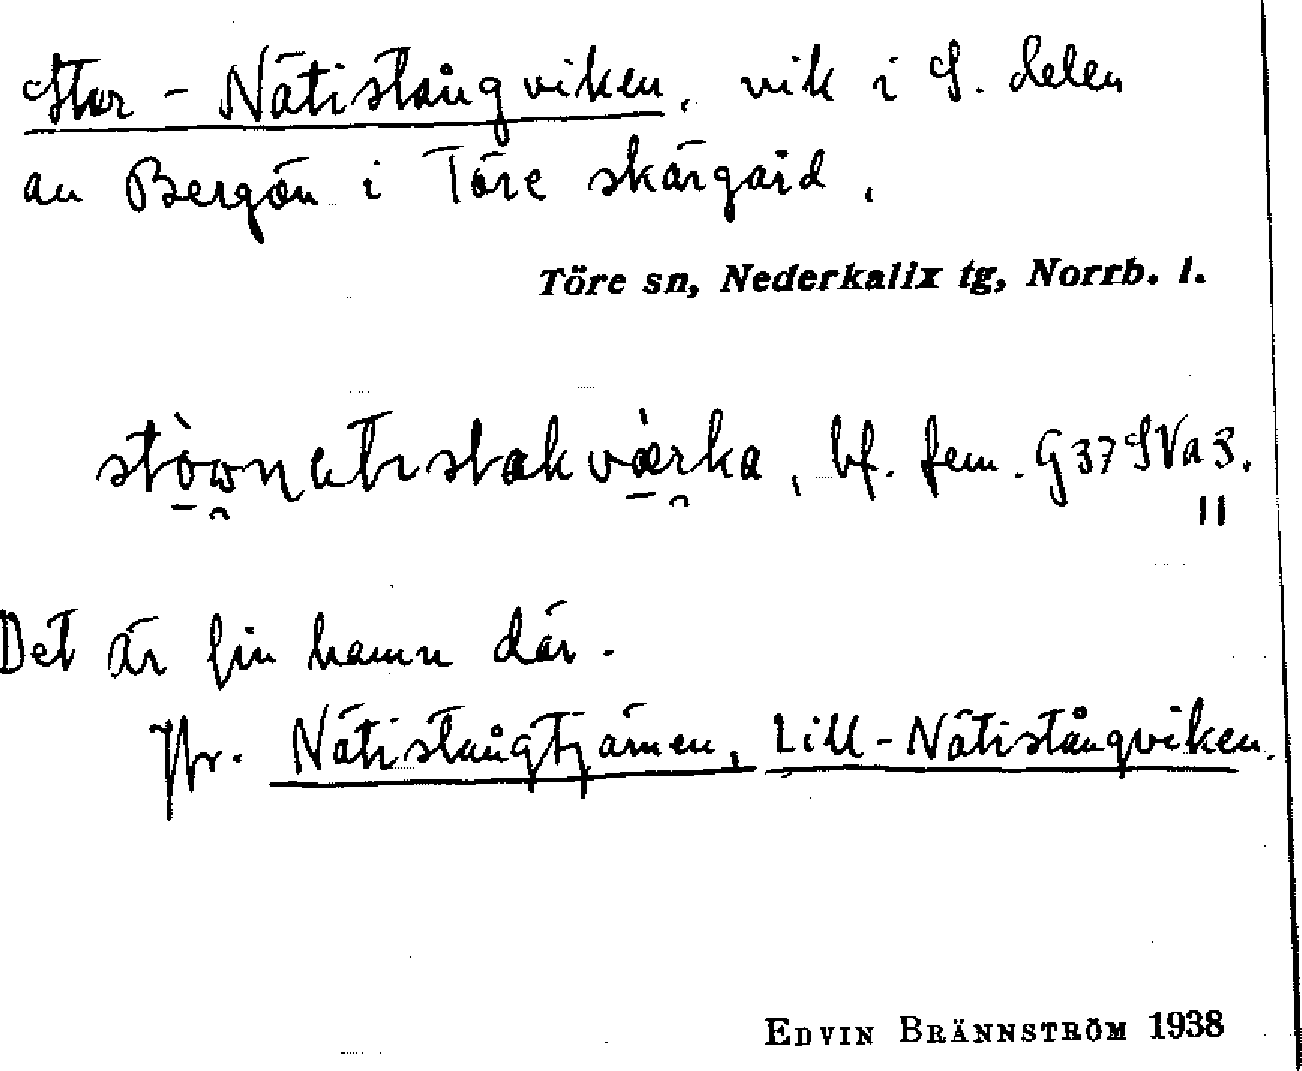 Stor-Nätistångviken, vik i S. delen
av Bergön i Töre skärgård.
Töre sn, Nederkalix tg, Norrb. l.
bf. fem. G 37 SVa 3.
Det är fin hamn där.
Jfr. Nätistångtjärnen, Lill-Nätistångviken.
EDVIN BRÄNNSTRÖM 1938